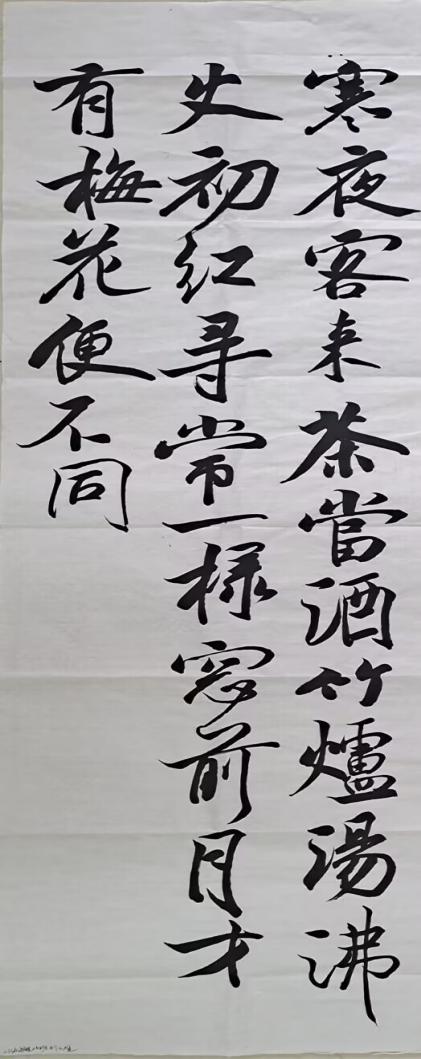 寒夜客来茶當酒竹爐湯沸
火初红寻常一樣窓前月才
有梅花便不同